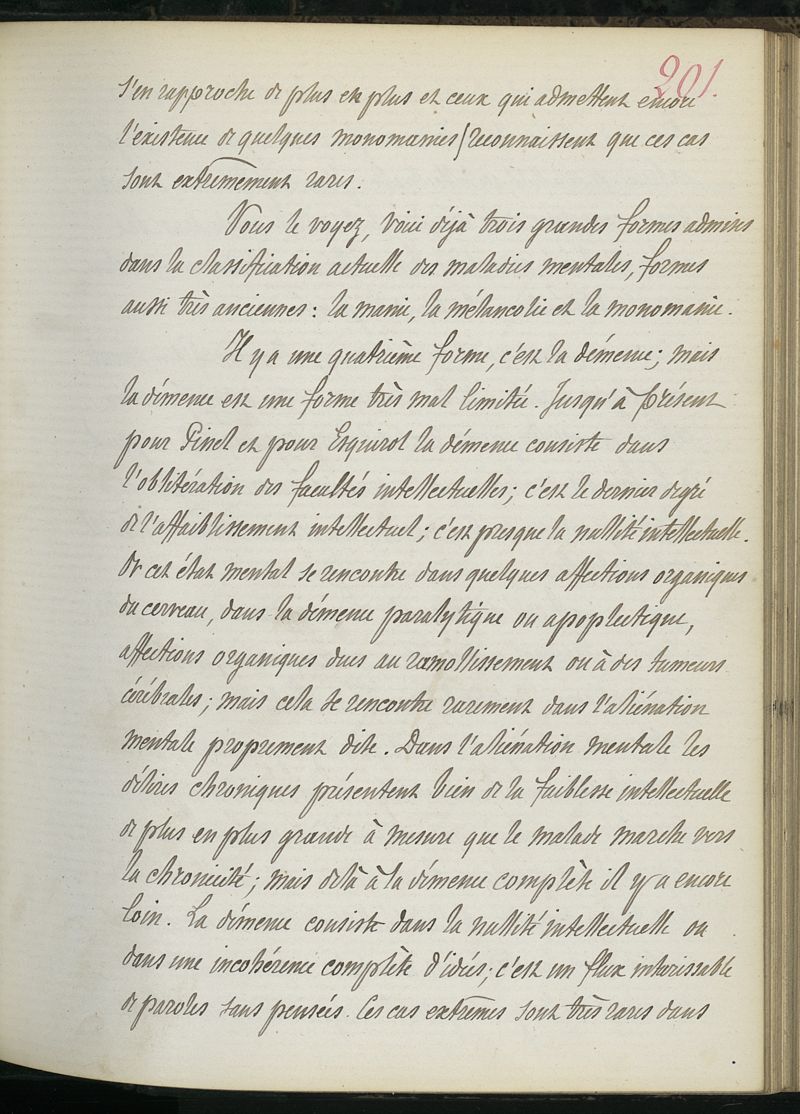 201.
s'en rapproche de plus en plus et ceux qui admettent encore
l'existence de quelques monomanies (reconnaissent que ces cas
sont extrêmement rares.
Vous le voyez, voici déjà trois grandes formes admises
dans la classification actuelle des maladies mentales, formes
aussi très anciennes : la manie, la mélancolie et la monomanie.
Il y a une quatrième forme, c'est la démence ; mais
la démence est une forme très mal limitée. Jusqu'à présent
pour Pinel et pour Esquirol la démence consiste dans
l'oblitération des facultés intellectuelles ; c'est le dernier degré
de l'affaiblissement intellectuel ; c'est presque la nullité intellectuelle.
Or cet état mental se rencontre dans quelques affections organiques
du cerveau, dans la démence paralytique ou apoplectique,
affections organiques dues au ramollissement ou à des tumeurs
cérébrales ; mais cela se rencontre rarement dans l'aliénation
mentale proprement dite. Dans l'aliénation mentale les
délires chroniques présentent bien de la faiblesse intellectuelle
de plus en plus grande à mesure que le malade marche vers
la chronicité ; mais de là à la démence complète il y a encore
loin. La démence consiste dans la nullité intellectuelle ou
dans une incohérence complète d'idées ; c'est un flux intarissable
de paroles sans pensées. Ces cas extrêmes sont très rares dans